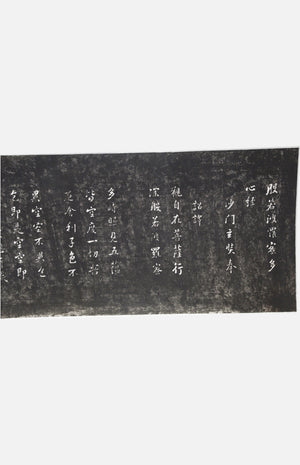 般若波羅蜜多
心經
沙門玄奘奉
詔譯
觀自在菩薩行
深般若波羅蜜
多時照見五蘊
皆空度一切苦
厄舍利子色不
異空空不異色
色即是空空即